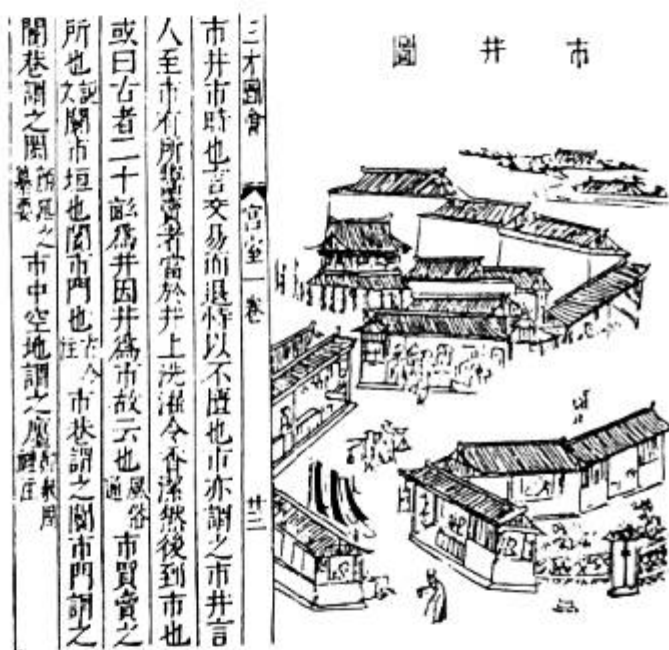 市井圖
三才圖會 宮室一卷 廿二
市井市時也言交易而退恃以不匱也市亦謂之市井言
人至市有所鬻賣者當於井上洗濯令香潔然後到市也
或曰古者二十畝爲井因井爲市故云也風俗通市買賣之
所也說文闤市垣也闠市門也古今注市巷謂之闤市門謂之
闠巷謂之纂要市中空地謂之廛